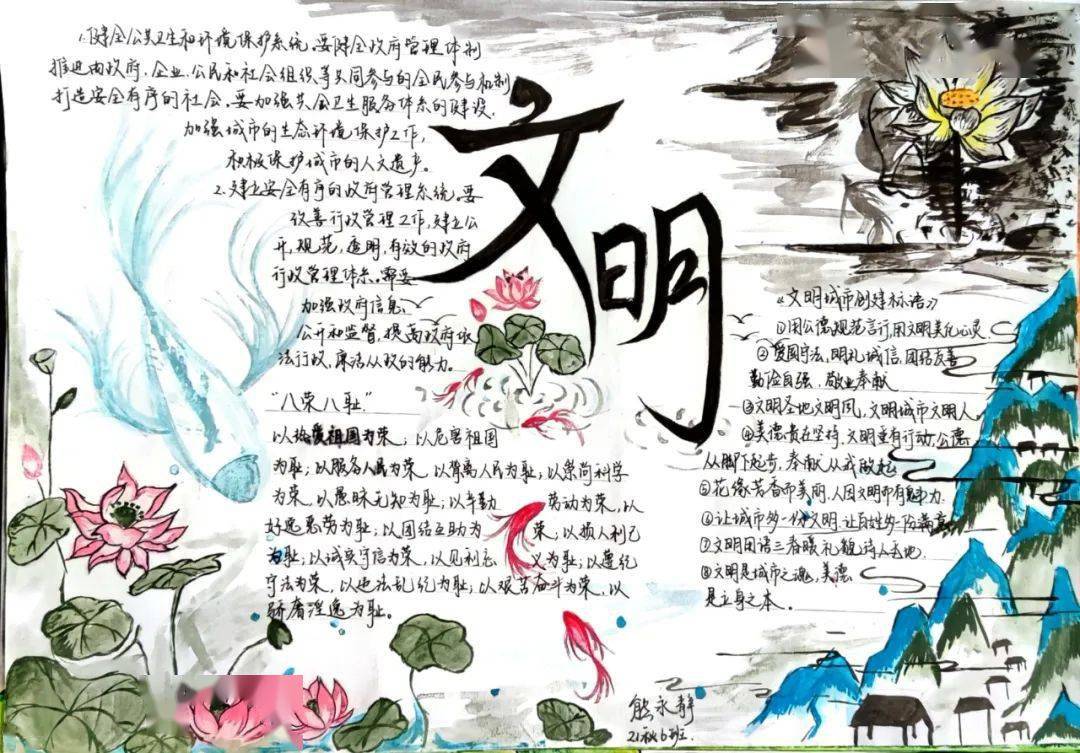 1.健全公共卫生和环境保护系统,要健全政府管理体制
推进由政府、企业、公民和社会组织等共同参与的全民参与机制
打造安全有序的社会。要加强公共卫生服务体系的建设,
加强城市的生态环境保护工作,
积极保护城市的人文遗产。
2.建立安全有序的政府管理系统。要
改善行政管理工作,建立公
开,规范,透明,有效的政府
行政管理体系。需要
加强政府信息
公开和监督,提高政府依
法行政,廉洁从政的能力。
文明
“八荣八耻”
以热爱祖国为荣;以危害祖国
为耻;以服务人民为荣,以背离人民为耻;以崇尚科学
为荣,以愚昧无知为耻;以辛勤劳动为荣,以
好逸恶劳为耻;以团结互助为荣;以损人利己
为耻;以诚实守信为荣,以见利忘义为耻;以遵纪
守法为荣,以违法乱纪为耻;以艰苦奋斗为荣,以
骄奢淫逸为耻。
《文明城市创建标语》
①用公德规范言行用文明美化心灵
②爱国守法,明礼诚信,团结友善
勤俭自强,敬业奉献
③文明圣地文明风,文明城市文明人
④美德贵在坚持,文明重有行动,公德
从脚下起步,奉献从我做起
⑤花络芳香市美丽,人因文明市有魅力
⑥让城市多一份文明,让百姓多一份满意
⑦文明用语三春暖,礼貌待人
⑧文明是城市之魂,美德
是立身之本。
熊永静
21秋6班